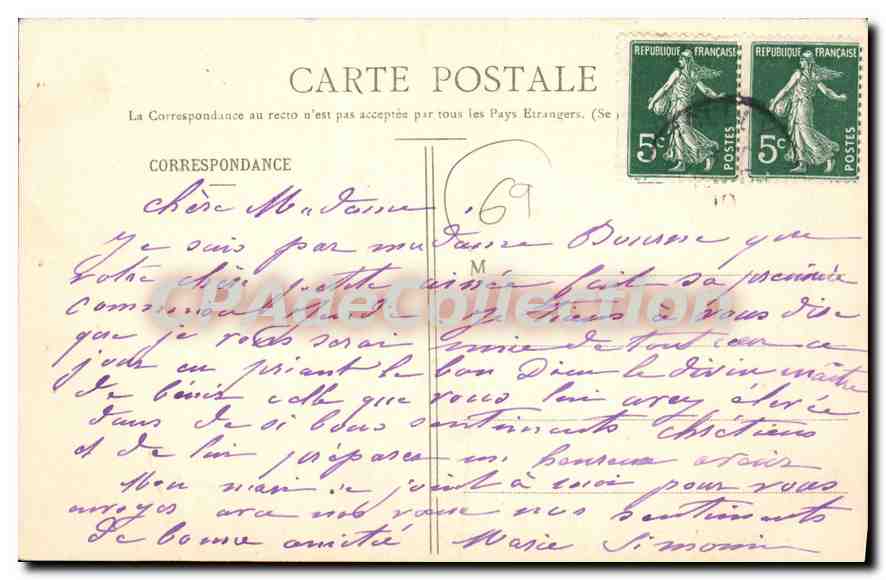 CARTE POSTALE
La Correspondance au recto n'est pas acceptée par tous les Pays Etrangers. (Se
REPUBLIQUE FRANÇAISE 5c POSTES
REPUBLIQUE FRANÇAISE 5c POSTES
CORRESPONDANCE
69
M
chère Madame
Je sais par madame Bourne que
votre chère petite ainée fait sa première
communion je tiens à vous dire
que je vous serai unie de tout cœur ce
jour en priant le bon Dieu le divin maître
de bénir celle que vous lui avez élevée
dans de si bons sentiments chrétiens
et de lui préparer un heureux avenir
Mon mari se joint à moi pour vous
envoyer avec nos vœux nos sentiments
de bonne amitié Marie Simonin
CPAdeCollection